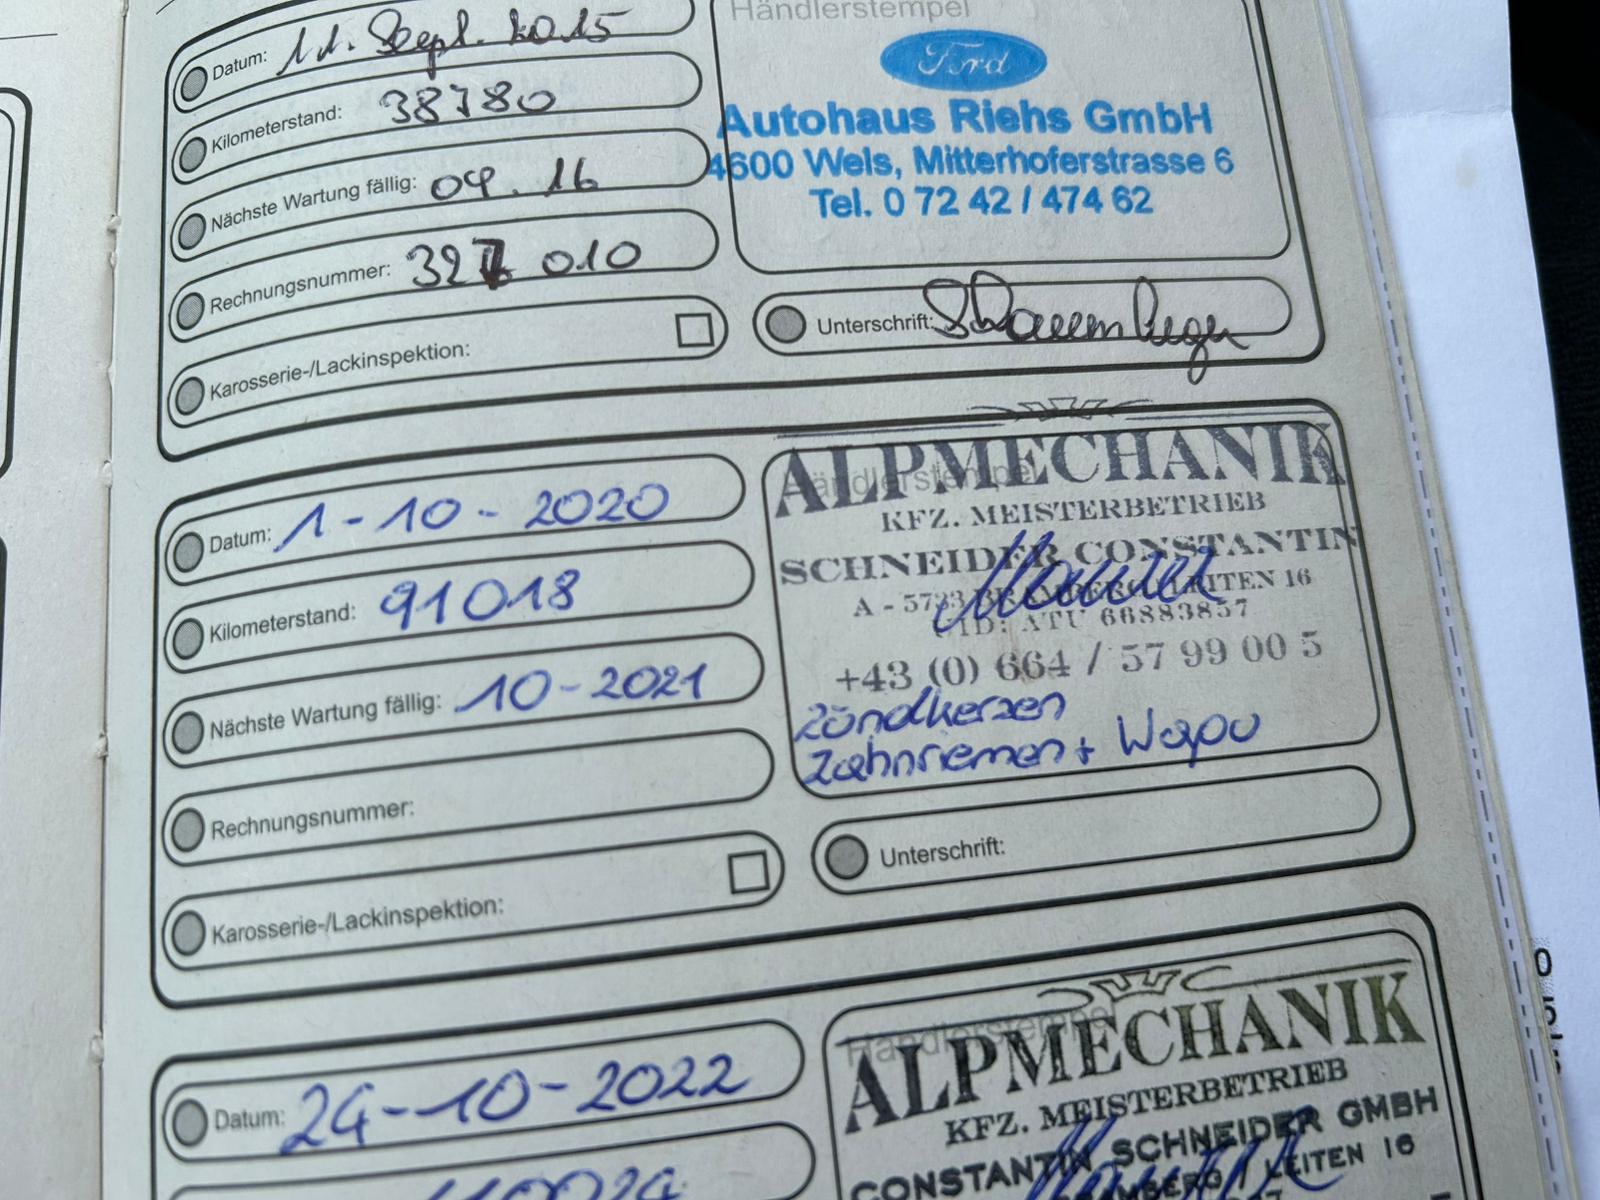 Datum: 11. Sept. 2015
Kilometerstand: 38780
Nächste Wartung fällig: 09.16
Rechnungsnummer: 327 010
Karosserie-/Lackinspektion:
Händlerstempel
Ford
Autohaus Riehs GmbH
4600 Wels, Mitterhoferstrasse 6
Tel. 0 72 42 / 474 62
Unterschrift:
Datum: 1-10-2020
Kilometerstand: 91018
Nächste Wartung fällig: 10-2021
Rechnungsnummer:
Karosserie-/Lackinspektion:
Händlerstempel
ALPMECHANIK
KFZ. MEISTERBETRIEB
SCHNEIDER CONSTANTIN
A - 5733 BRAMBERG / LEITEN 16
UID: ATU 66883857
+43 (0) 664 / 57 99 00 5
Zündkerzen
Zahnriemen + Wapu
Unterschrift:
Datum: 24-10-2022
Händlerstempel
ALPMECHANIK
KFZ. MEISTERBETRIEB
CONSTANTIN SCHNEIDER GMBH
LEITEN 16